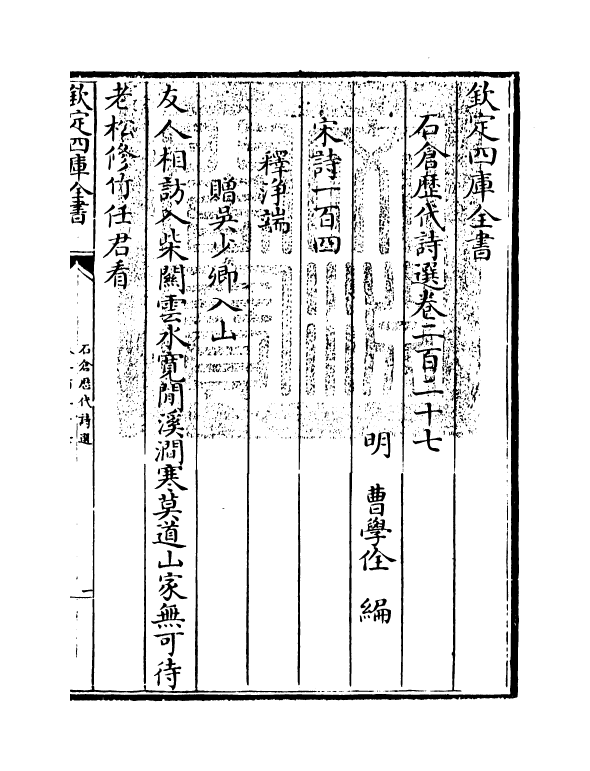 欽定四庫全書
石倉歷代詩選卷二百二十七
明 曹學佺 編
宋詩一百四
釋淨端
贈吳少卿入山
友人相訪入柴關雲水寛閒溪澗寒莫道山家無可待
老松修竹任君看
欽定四庫全書
石倉歷代詩選
一